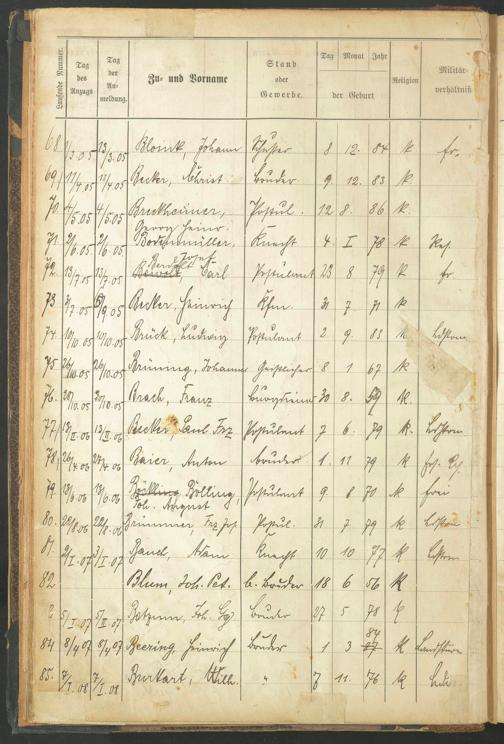 Laufende Nummer. Tag des Anzugs Tag der Anmeldung. Zu- und Vorname Stand oder Gewerbe. Tag Monat Jahr der Geburt Religion Militärverhältniß
68 1/3.05 13/3.05 Blonk, Johann Schuster 8 12. 84 k fr.
69 11/4.05 11/4.05 Becker, Christ. Bruder 9. 12. 83 k.
70. 4/5.05 4/5.05 Breckheimer, Postul. 12 8. 86 k.
Georg Heinr.
71. 2/6.05. 2/6.05 Bodenmüller, Knecht 4. I 78 k Res.
Josef
72. 13/7.05 13/7.05 Carl Postulant 23 8 79 k fr
73 9.05 Becker, Heinrich Kfm. 31 7 71 k
74. 10/10.05 10/10.05 Brück, Ludwig Postulant 2 9. 83 k
75. 26/10.05 26/10.05 Brüning, Johannes Geistlicher 8 1 67 k
76. 28/10.05 28/10.05 Brach, Franz 30 8. 59 k.
77. 13/II.06 13/II.06 Becker, Paul Frz Postulant 7 6. 79 k.
78. 26/4.06 27/4.06 Baier, Anton Bruder 1. 11 79 k
79. 13/6.06 13/6.06 Bölling, Postulant 9. 8 70 k frei
Joh. August
80. 28/8.06 28/8.06 Brümmer, Frz Jos. Postul. 31 7 79 k
81. 2/I.07 3/I.07 Band, Adam Knecht 10 10 77 k
82 Blum, Joh. Pet. b. Bruder 18 6 56 k
5/I.07 5/II.07 Joh. Gg. Bruder 27 5 78 k
84
84 8/4.07 8/4.07 Beering, Heinrich Bruder 1 3 77 k Landsturm
85. 7/I.08 7/I.08 Burkart, Wilh. " 7 11. 76 k